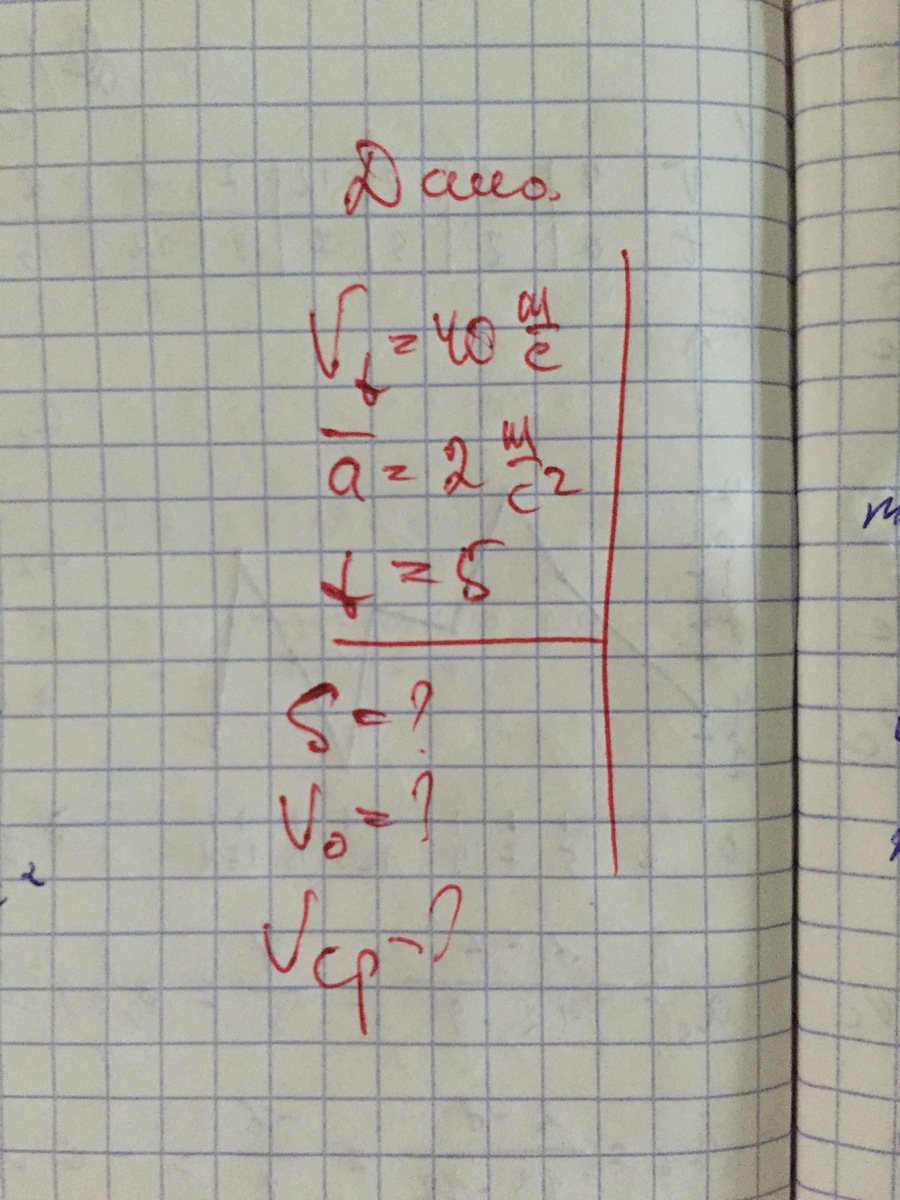 Дано.
V_t = 40 м/с
a̅ = 2 м/с²
t = 5
S - ?
V₀ = ?
Vср - ?